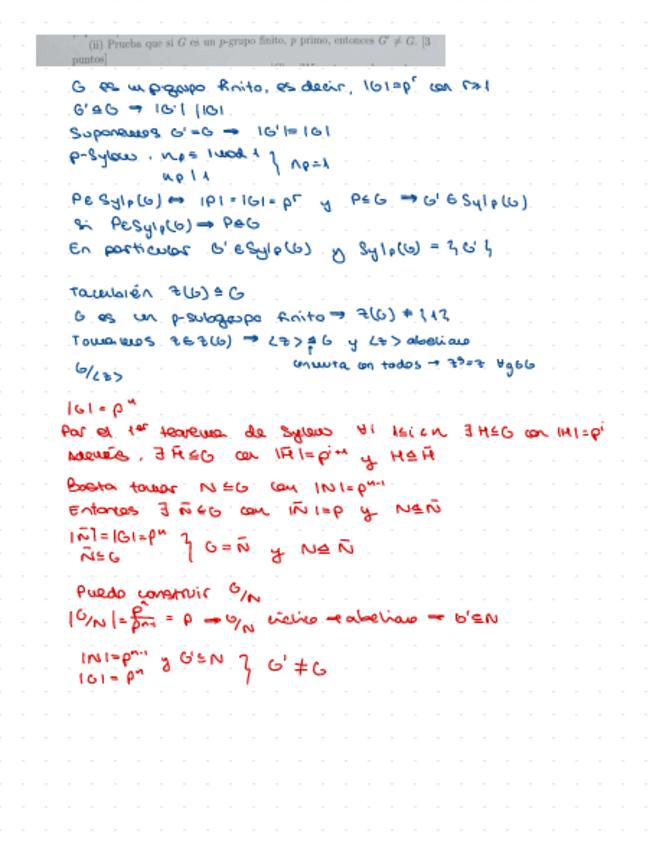 (ii) Prueba que si G es un p-grupo finito, p primo, entonces G' ≠ G. [3
puntos]
G es un p-grupo finito, es decir, |G|=p^r con r≥1
G'⊴G → |G'| | |G|
Suponemos G'=G → |G'|=|G|
p-Sylow. n_p ≡ 1 mod 1
n_p | 1 } n_p=1
P∈Syl_p(G) ↔ |P|=|G|=p^r y P≤G → G'∈Syl_p(G)
Si P∈Syl_p(G) → P⊴G
En particular G'∈Syl_p(G) y Syl_p(G) = {G'}
También Z(G)⊴G
G es un p-subgrupo finito → Z(G)≠{1}
Tomamos z∈Z(G) → <z>⊴G y <z> abeliano
conmuta con todos → z^g=z ∀g∈G
G/<z>
|G|=p^n
Por el 1er teorema de Sylow ∀i 1≤i<n ∃H≤G con |H|=p^i
Además, ∃H̄≤G con |H̄|=p^{i+1} y H⊴H̄
Basta tomar N≤G con |N|=p^{n-1}
Entonces ∃N̄≤G con |N̄|=p y N⊴N̄
|N̄|=|G|=p^n
N̄≤G } G=N̄ y N⊴N̄
Puedo construir G/N
|G/N|=p^n/p^{n-1}=p → G/N cíclico → abeliano → G'≤N
|N|=p^{n-1} y G'≤N
|G|=p^n } G'≠G